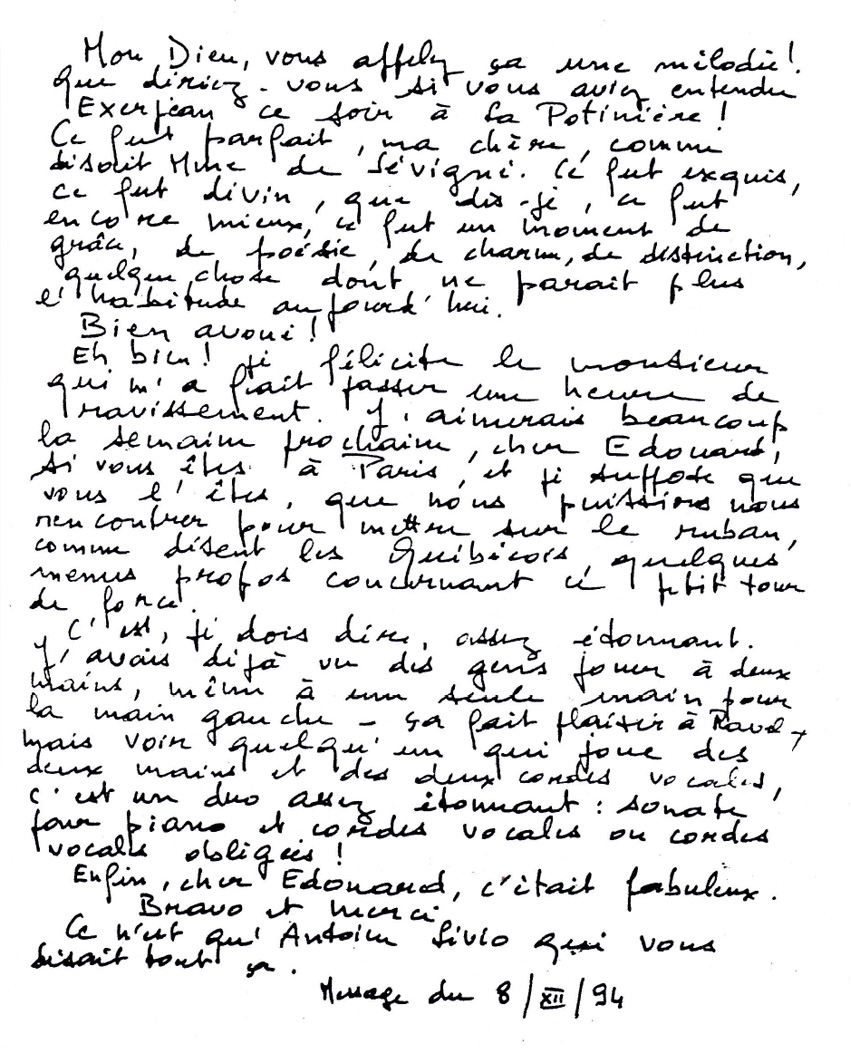 Mon Dieu, vous appelez ça une mélodie!
Que diriez-vous si vous aviez entendu
Exerjean ce soir à La Potinière!
Ce fut parfait, ma chère, comme
disait Mme de Sévigné. Ce fut exquis,
ce fut divin, que dis-je, ce fut
encore mieux, ce fut un moment de
grâce, de poésie, de charme, de distinction,
quelque chose dont ne parait plus
l'habitude aujourd'hui.
Bien avoué!
Eh bien! je félicite le monsieur
qui m'a fait passer une heure de
ravissement. J'aimerais beaucoup
la semaine prochaine, cher Edouard,
si vous êtes à Paris, et je suppose que
vous l'êtes, que nous puissions nous
rencontrer pour mettre sur le ruban,
comme disent les Québécois, quelques
menus propos concernant ce petit tour
de force.
C'est, je dois dire, assez étonnant.
J'avais déjà vu des gens jouer à deux
mains, même à une seule main pour
la main gauche - ça fait plaisir à Ravel -
mais voir quelqu'un qui joue des
deux mains et des deux cordes vocales,
c'est un duo assez étonnant : sonate
pour piano et cordes vocales ou cordes
vocales obligées!
Enfin, cher Edouard, c'était fabuleux.
Bravo et merci
Ce n'est qu'Antoine Livio qui vous
disait tout ça.
Message du 8/XII/94